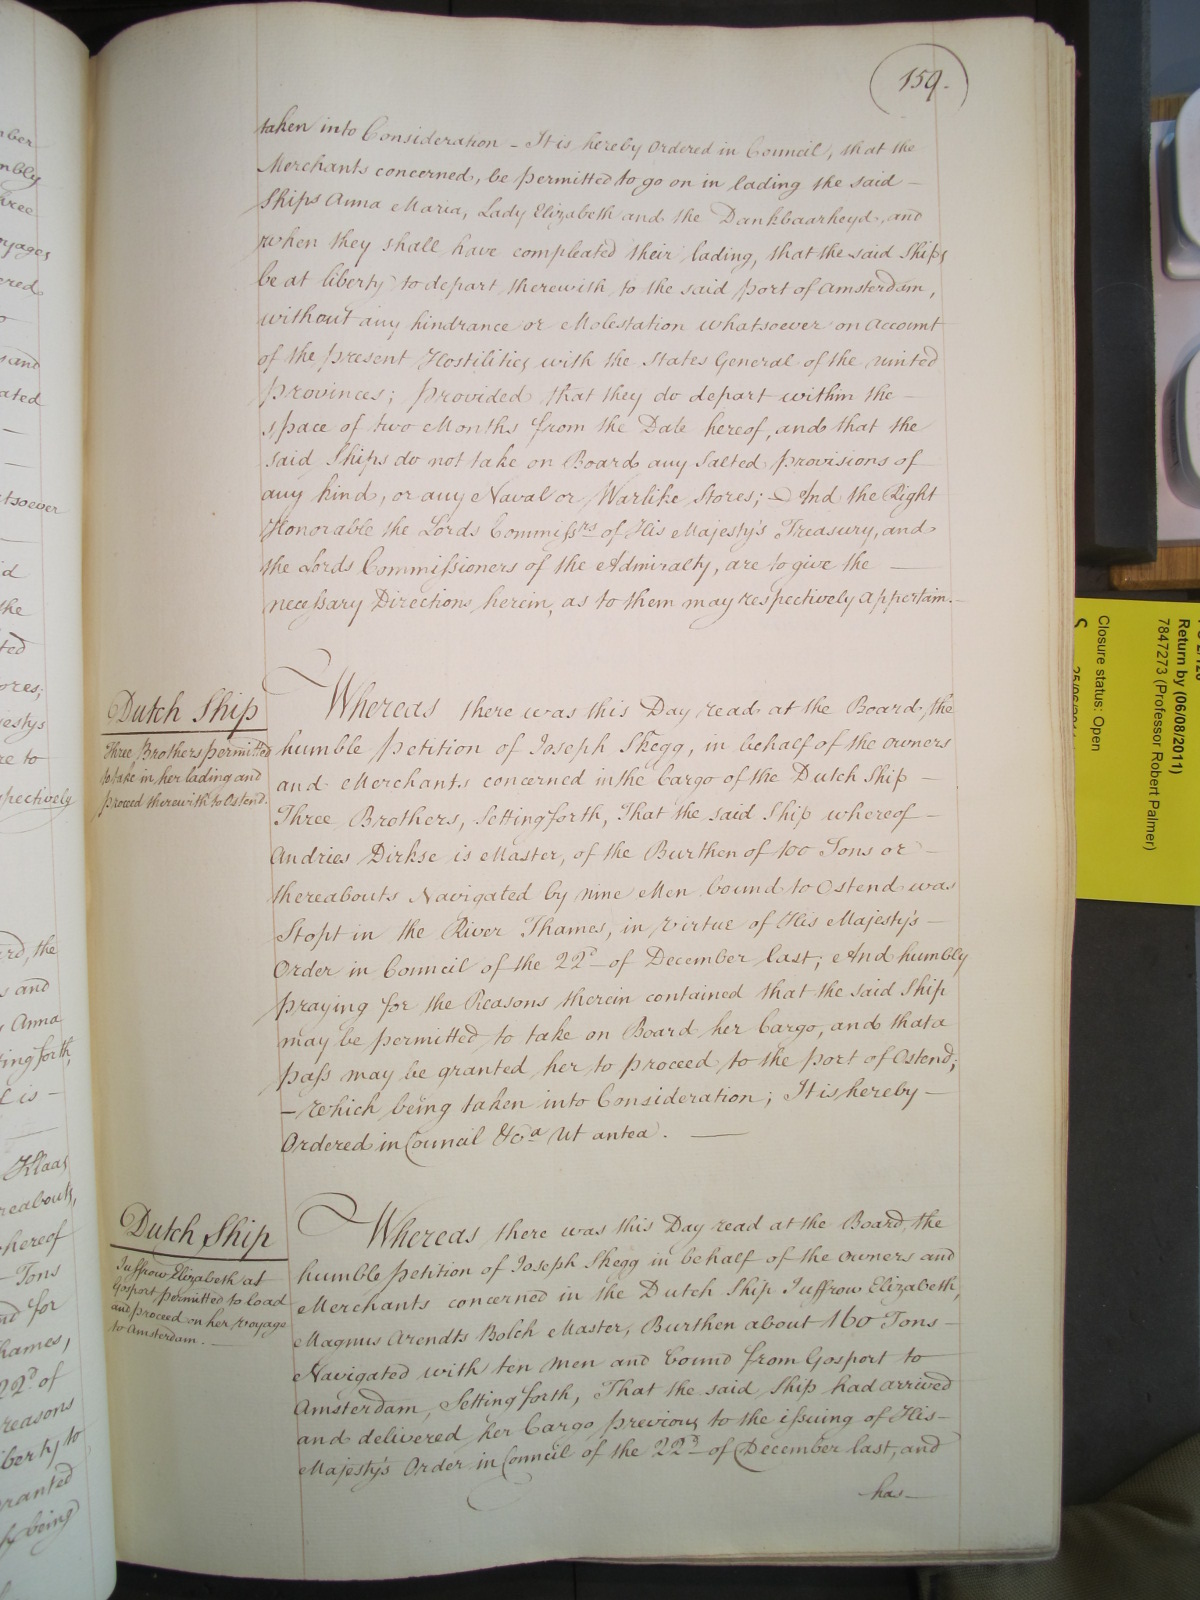 159.
taken into Consideration - It is hereby Ordered in Council, that the
Merchants concerned, be permitted to go on in lading the said -
Ships Anna Maria, Lady Elizabeth and the Dankbaarheyd, and
when they shall have compleated their lading, that the said Ships
be at liberty to depart therewith to the said Port of Amsterdam,
without any hindrance or Molestation whatsoever on Account
of the present Hostilities with the States General of the united
Provinces; Provided that they do depart within the -
space of two Months from the Date hereof, and that the
said Ships do not take on Board any Salted Provisions of
any kind, or any Naval or Warlike Stores; - And the Right
Honorable the Lords Commissrs of His Majesty's Treasury, and
the Lords Commissioners of the Admiralty, are to give the -
necessary Directions herein, as to them may respectively Appertain. -
Dutch Ship
Three Brothers permitted
to take in her lading and
proceed therewith to Ostend.
Whereas there was this Day read at the Board, the
humble Petition of Joseph Skegg, in behalf of the owners
and Merchants concerned in the Cargo of the Dutch Ship -
Three Brothers, Setting forth, That the said Ship whereof -
Andries Dirkse is Master, of the Burthen of 100 Tons or -
thereabouts Navigated by nine Men bound to Ostend was
Stopt in the River Thames, in virtue of His Majesty's -
Order in Council of the 22d of December last; And humbly
praying for the Reasons therein contained that the said Ship
may be permitted to take on Board her Cargo, and that a
pass may be granted her to proceed to the Port of Ostend;
- Which being taken into Consideration; It is hereby -
Ordered in Council &ca Ut antea. -
Dutch Ship
Juffrow Elizabeth at
Gosport permitted to load
and proceed on her voyage
to Amsterdam. -
Whereas there was this Day read at the Board, the
humble Petition of Joseph Skegg in behalf of the owners and
Merchants concerned in the Dutch Ship Juffrow Elizabeth,
Magnus Arendts Bolch Master, Burthen about 160 Tons -
Navigated with ten men and bound from Gosport to
Amsterdam, Setting forth, That the said Ship had arrived
and delivered her Cargo previous to the issuing of His -
Majesty's Order in Council of the 22d of December last, and
has -
Return by (06/08/2011)
7847273 (Professor Robert Palmer)
Closure status: Open